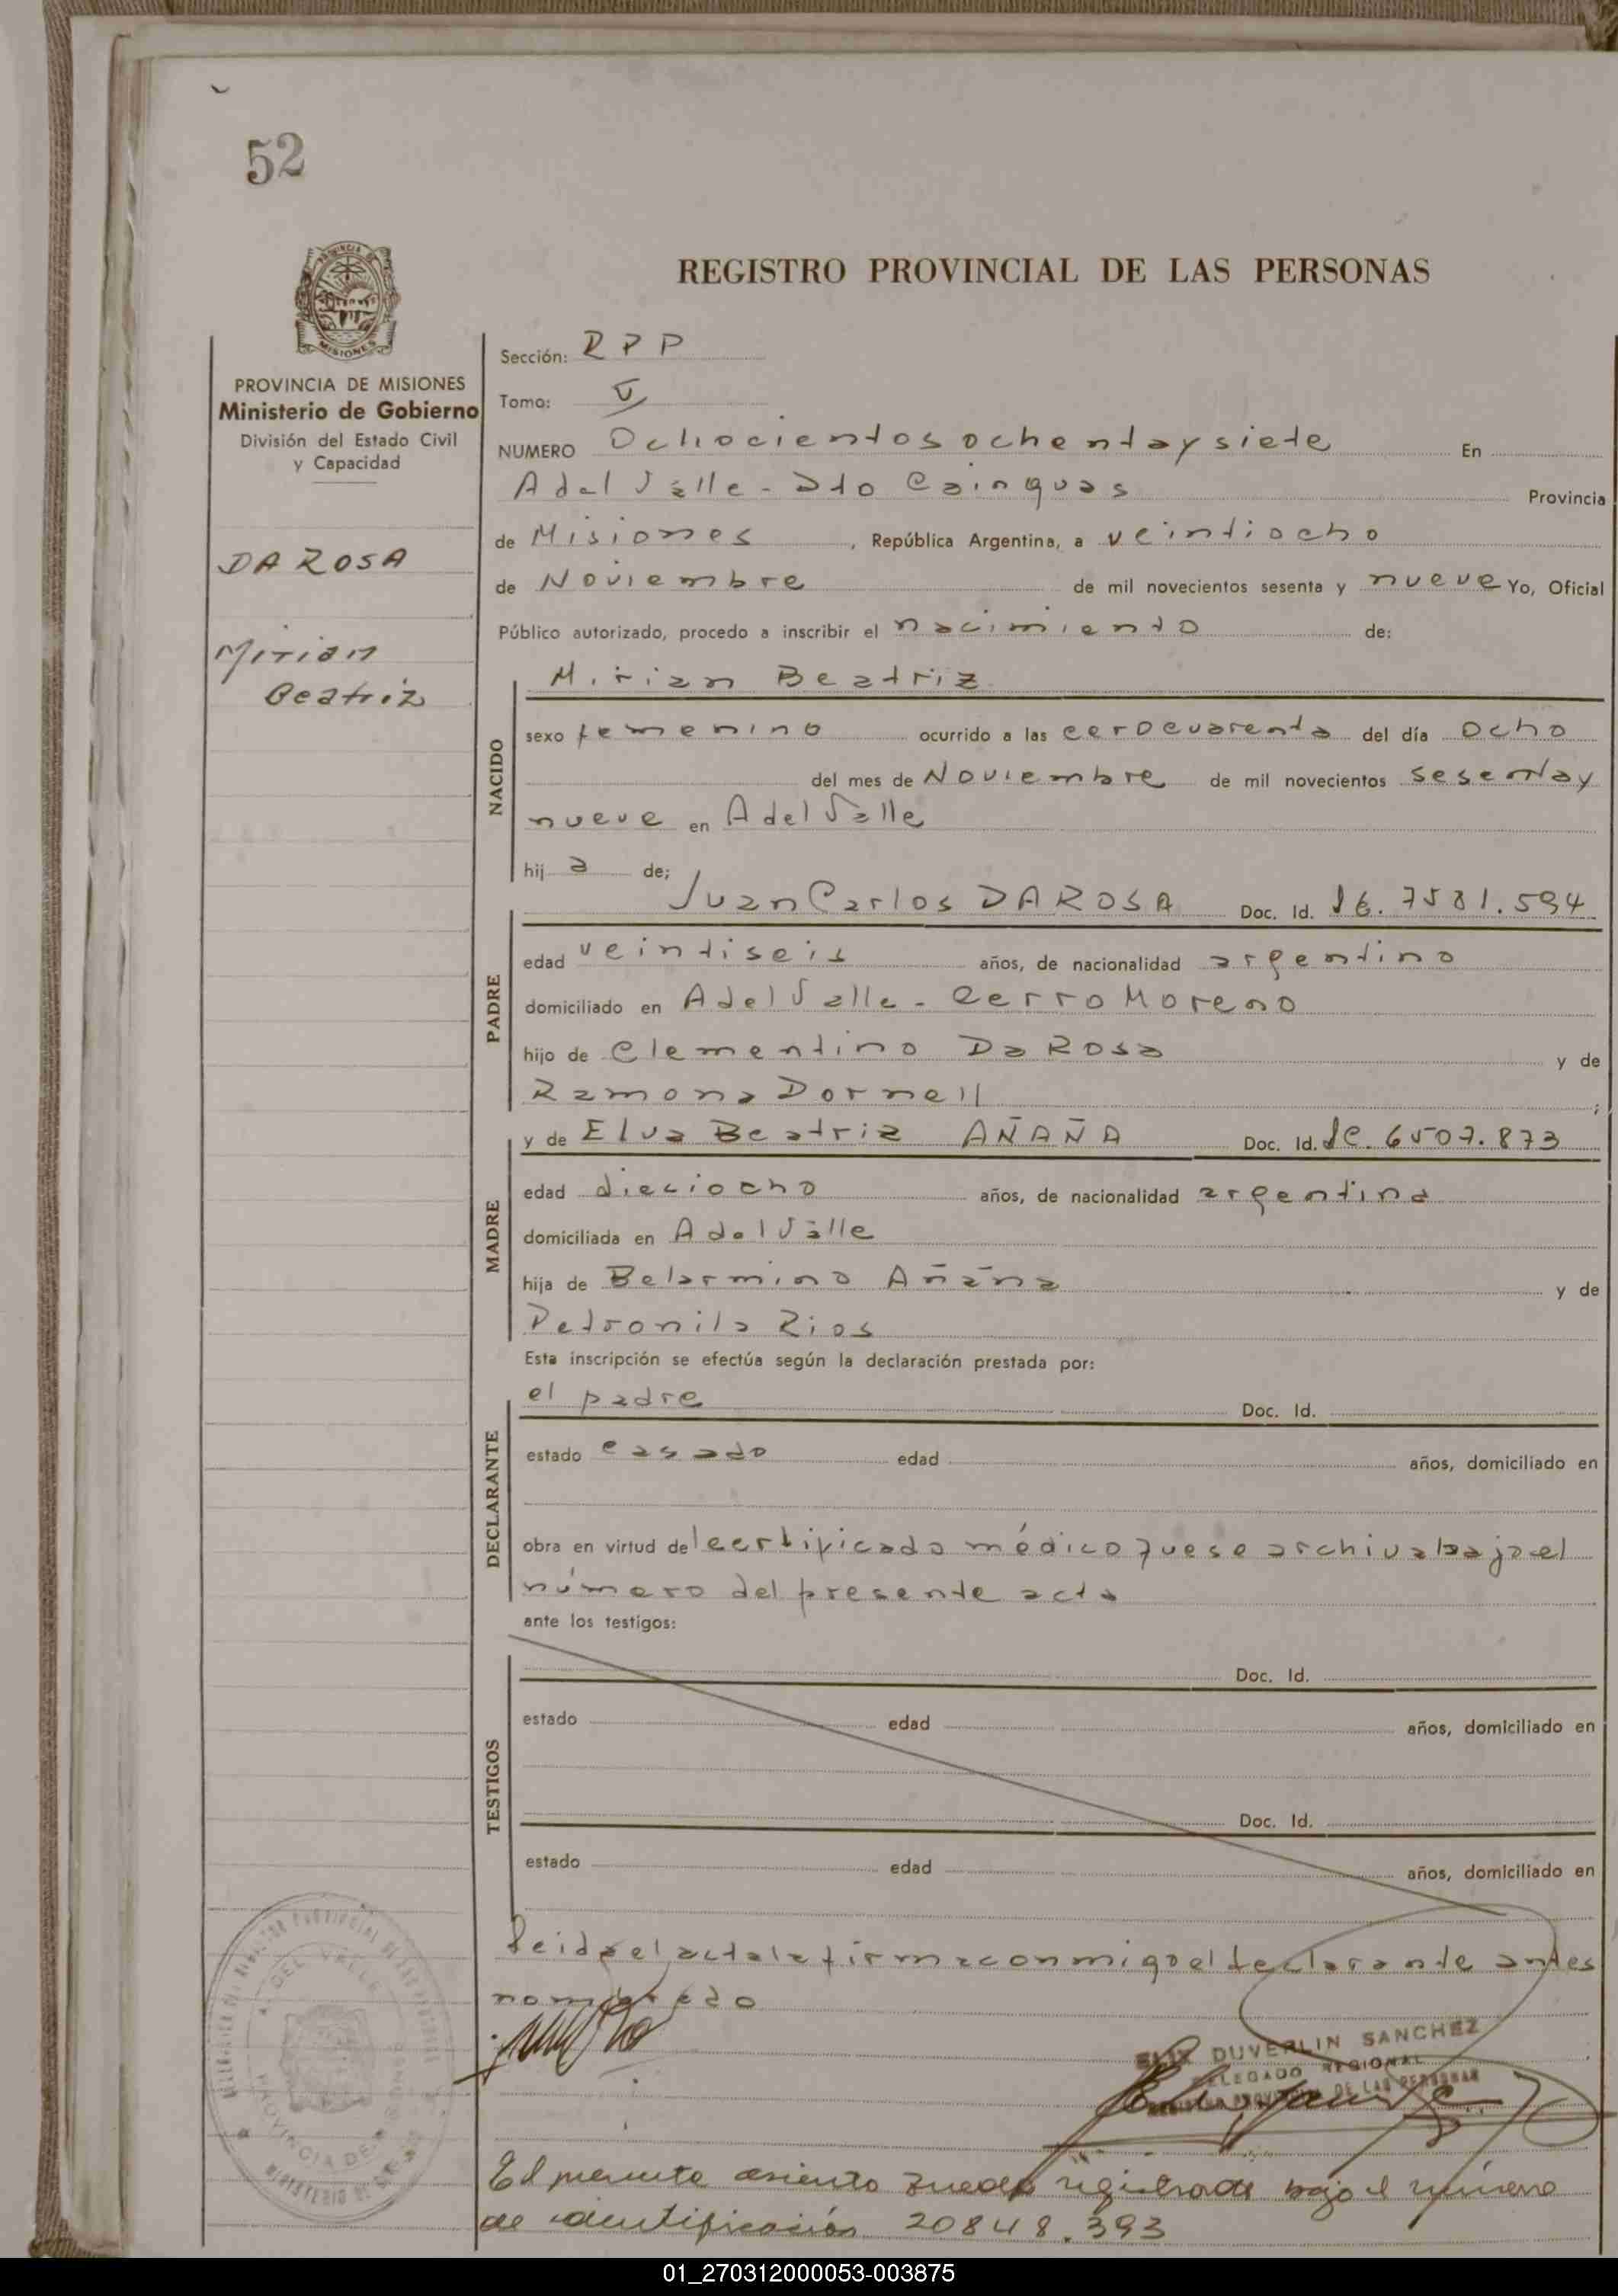 52
REGISTRO PROVINCIAL DE LAS PERSONAS
PROVINCIA DE MISIONES
Ministerio de Gobierno
División del Estado Civil
y Capacidad
DA ROSA
Mirian
Beatriz
Sección: RPP
Tomo: V
NUMERO Ochocientos ochenta y siete En
A del Valle - Dto Cainguas Provincia
de Misiones, República Argentina, a veintiocho
de Noviembre de mil novecientos sesenta y nueve Yo, Oficial
Público autorizado, procedo a inscribir el nacimiento de:
Mirian Beatriz
NACIDO
sexo femenino ocurrido a las cero cuarenta del día ocho
del mes de Noviembre de mil novecientos sesenta y
nueve en A del Valle
hij a de;
Juan Carlos DA ROSA Doc. Id.
PADRE
edad veintiseis años, de nacionalidad argentino
domiciliado en A del Valle - Cerro Moreno
hijo de Clementino Da Rosa y de
Ramona Dornell;
y de Elva Beatriz AÑAÑA Doc. Id. 6507.873
MADRE
edad dieciocho años, de nacionalidad argentina
domiciliada en A del Valle
hija de Belarmino Añaña y de
Petronila Rios
Esta inscripción se efectúa según la declaración prestada por:
el padre Doc. Id.
DECLARANTE
estado casado edad años, domiciliado en
obra en virtud del certificado médico que se archiva bajo el
número del presente acta
ante los testigos:
Doc. Id.
TESTIGOS
estado edad años, domiciliado en
Doc. Id.
estado edad años, domiciliado en
Leida el acta la firma conmigo el declarante antes
nombrado
DUVERLIN SANCHEZ
DELEGADO REGIONAL
REGISTRO PROVINCIAL DE LAS PERSONAS
El presente asiento queda registrado bajo el número
de identificación 20848.393
01_270312000053-003875